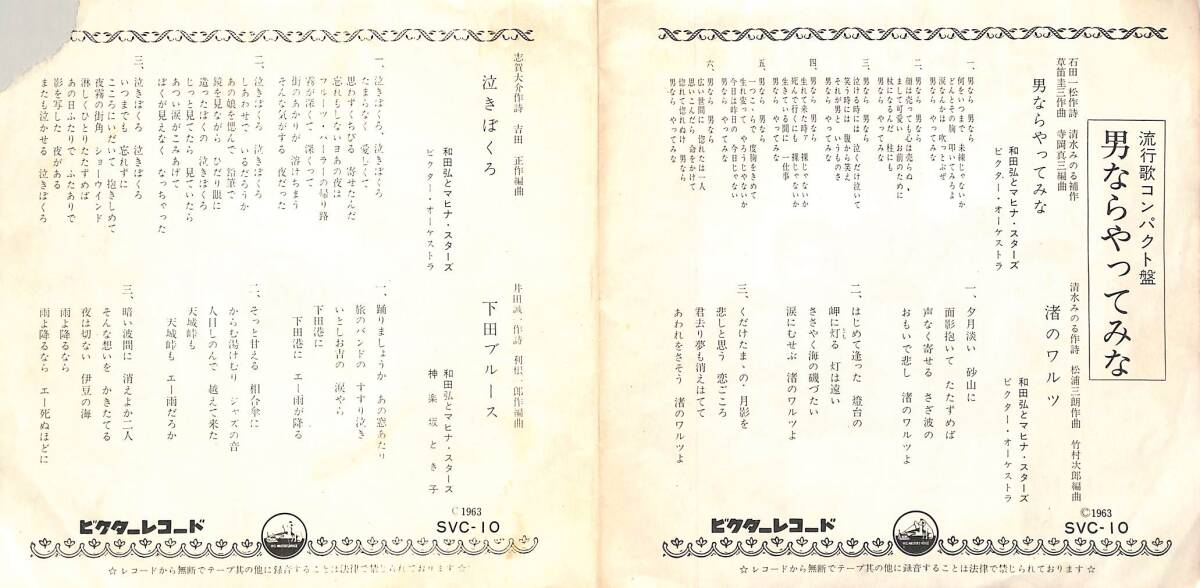 流行歌コンパクト盤
男ならやってみな
石田一松作詩 清水みのる補作
草笛圭三作曲 寺岡真三編曲
男ならやってみな
和田弘とマヒナ・スターズ
ビクター・オーケストラ
一、男なら 男なら
何をいつまで 未練じゃないか
どんとその胸 叩いてみろよ
涙なんかは 吹っとぶぜ
男なら やってみな
二、男なら 男なら
顔は売っても 心は売らぬ
まして可愛い お前のために
杖になるんだ 柱にも
男なら やってみな
三、男なら 男なら
泣ける時には 泣くだけ泣いて
笑う時には 腹から笑え
それが男と いうものさ
男なら やってみな
四、男なら 男なら
生れて来た時ァ 裸じゃないか
死んで行くにも 裸じゃないか
生きてる間に 一仕事
男なら やってみな
五、男なら 男なら
一つころんで 度胸をきめて
生れ変って やろうじゃないか
今日は昨日の 今日じゃない
男なら やってみな
六、男なら 男なら
広い世間に 惚れたは一人
思いこんだら 命をかけて
惚れて惚れぬけ 男なら
男なら やってみな
清水みのる作詩 松浦三朗作曲 竹村次郎編曲
渚のワルツ
和田弘とマヒナ・スターズ
ビクター・オーケストラ
一、夕月淡い 砂山に
面影抱いて たたずめば
声なく寄せる さざ波の
おもいで悲し 渚のワルツよ
二、はじめて逢った 燈台の
岬に灯る 灯は遠い
ささやく海の 磯づたい
涙にむせぶ 渚のワルツよ
三、くだけたまゝの 月影を
悲しと思う 恋ごころ
君去り夢も 消えはてて
あわれをさそう 渚のワルツよ
©1963
SVC-10
ビクターレコード
☆レコードから無断でテープ其の他に録音することは法律で禁じられております☆
志賀大介作詩 吉田 正作編曲
泣きぼくろ
和田弘とマヒナ・スターズ
ビクター・オーケストラ
一、泣きぼくろ、泣きぼくろ
たまらなく 愛しくて
思わずくちびる 寄せたんだ
忘れもしないヨ あの夜は
フルーツ・パーラーの帰り路
霧が深くて 深くって
街のあかりが 溶けちまう
そんな気がする 夜だった
二、泣きぼくろ 泣きぼくろ
しあわせで いるだろうか
あの娘を偲んで 鉛筆で
鏡を見ながら ひだり眼に
造ったぼくの 泣きぼくろ
じっと見てたら 見ていたら
あつい涙が こみあげて
ぼくが見えなく なっちゃった
三、泣きぼくろ 泣きぼくろ
いつまでも 忘れずに
こころにいだいて 抱きしめて
夜霧の街角 ショーウインド
淋しくひとり たたずめば
あの日ふたりで ふたありで
影を写した 夜がある
またも泣かせる 泣きぼくろ
井田誠一作詩 利根一郎作編曲
下田ブルース
和田弘とマヒナ・スターズ
神楽坂とき子
一、踊りましょうか あの窓あたり
旅のバンドの すすり泣き
いとしお吉の 涙やら
下田港に
下田港に エー雨が降る
二、そっと甘える 相合傘に
からむ湯けむり ジャズの音
人目しのんで 越えて来た
天城峠も
天城峠も エー雨だろか
三、暗い波間に 消えよか二人
そんな想いを かきたてる
夜は切ない 伊豆の海
雨よ降るなら
雨よ降るなら エー死ぬほどに
©1963
SVC-10
ビクターレコード
☆レコードから無断でテープ其の他に録音することは法律で禁じられております☆